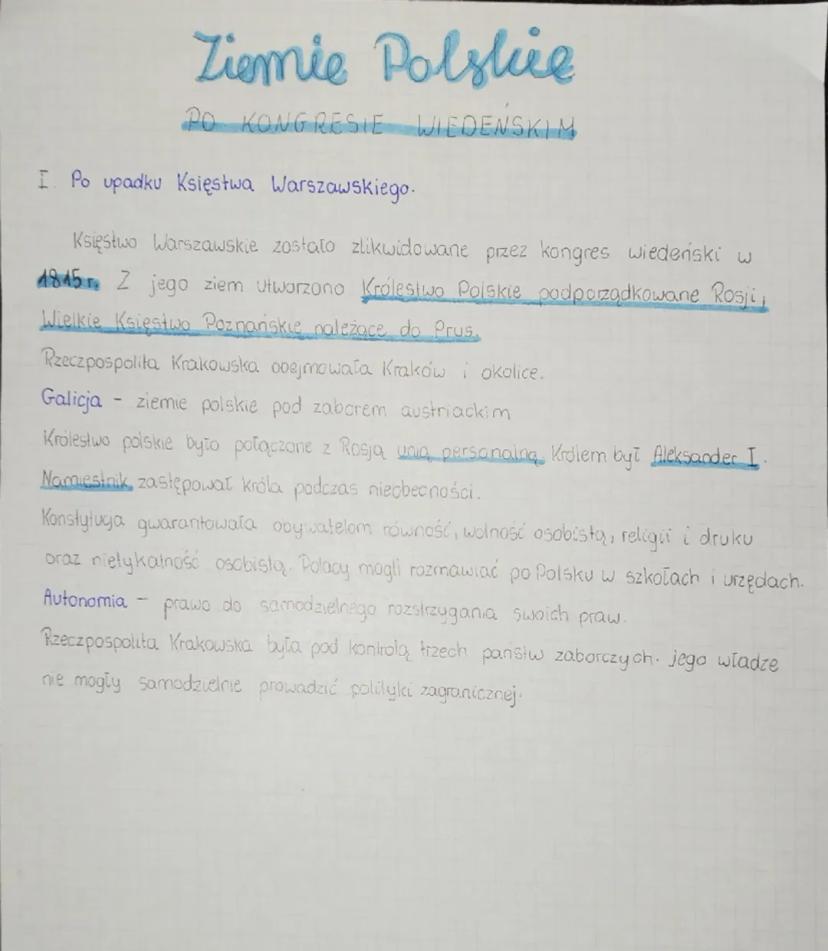 Ziemie Polskie
PO KONGRESIE WIEDEŃSKIM
I. Po upadku Księstwa Warszawskiego.
Księstwo Warszawskie zostało zlikwidowane przez kongres wiedeński w
1815 r. Z jego ziem utworzono Królestwo Polskie podporządkowane Rosji,
Wielkie Księstwo Poznańskie należące do Prus.
Rzeczpospolita Krakowska obejmowała Kraków i okolice.
Galicja - ziemie polskie pod zaborem austriackim
Królestwo polskie było połączone z Rosją unią personalną. Królem był Aleksander I.
Namiestnik zastępował króla podczas nieobecności.
Konstytucja gwarantowała obywatelom równość, wolność osobistą, religii i druku
oraz nietykalność osobistą. Polacy mogli rozmawiać po Polsku w szkołach i urzędach.
Autonomia - prawo do samodzielnego rozstrzygania swoich praw.
Rzeczpospolita Krakowska była pod kontrolą trzech państw zaborczych. jego władze
nie mogły samodzielnie prowadzić polityki zagranicznej.